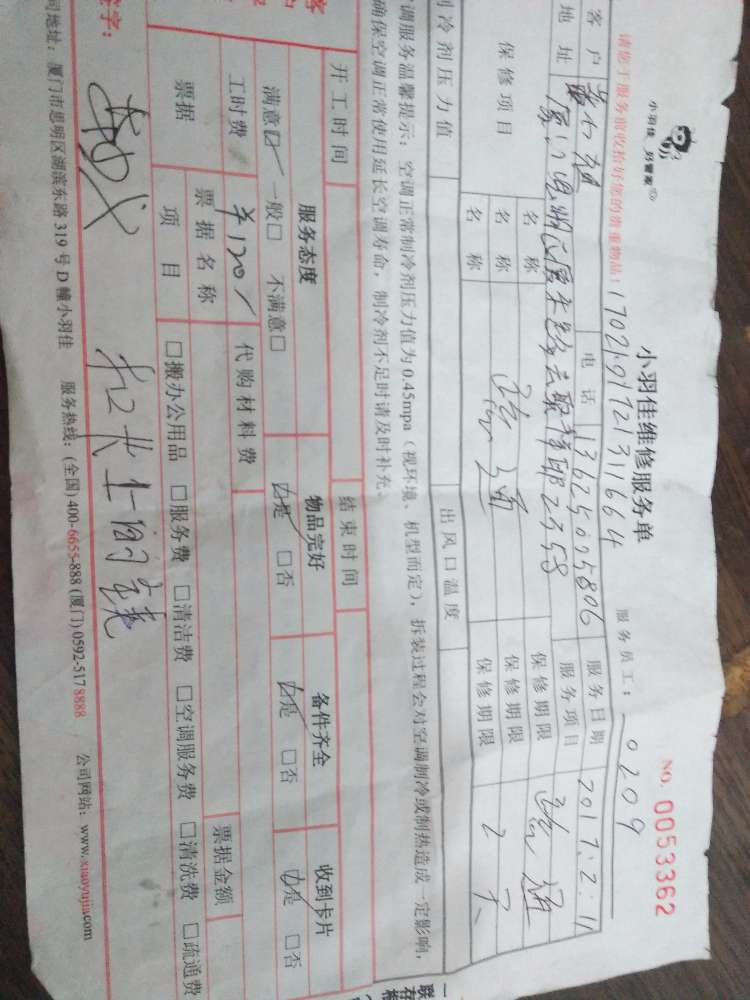 小羽佳 好管家
小羽佳维修服务单
NO. 0053362
请您于服务前收拾好您的贵重物品：
17021.01721 31664
服务员工：
0209
客户
电话
13625095806
服务日期
2017.2.11
地址
厦门思明区
2358
服务项目
疏通
保修项目
名称
保修期限
名称
疏通
保修期限
2天
名称
保修期限
制冷剂压力值
出风口温度
调服务温馨提示：空调正常制冷剂压力值为 0.45mpa（视环境、机型而定），拆装过程会对空调制冷或制热造成一定影响，
确保空调正常使用延长空调寿命，制冷剂不足时请及时补充。
开工时间
结束时间
服务态度
物品完好
备件齐全
收到卡片
满意☑ 一般□ 不满意□
☑是 □否
☑是 □否
☑是 □否
工时费
¥120/
代购材料费
票据
票据名称
票据金额
项目
□搬办公用品 □服务费 □清洁费 □空调服务费 □清洗费 □疏通费
字：
司地址：厦门市思明区湖滨东路 319 号 D 幢小羽佳 服务热线：(全国)400-6655-888 (厦门)0592-5178888 公司网站：www.xiaoyujia.com